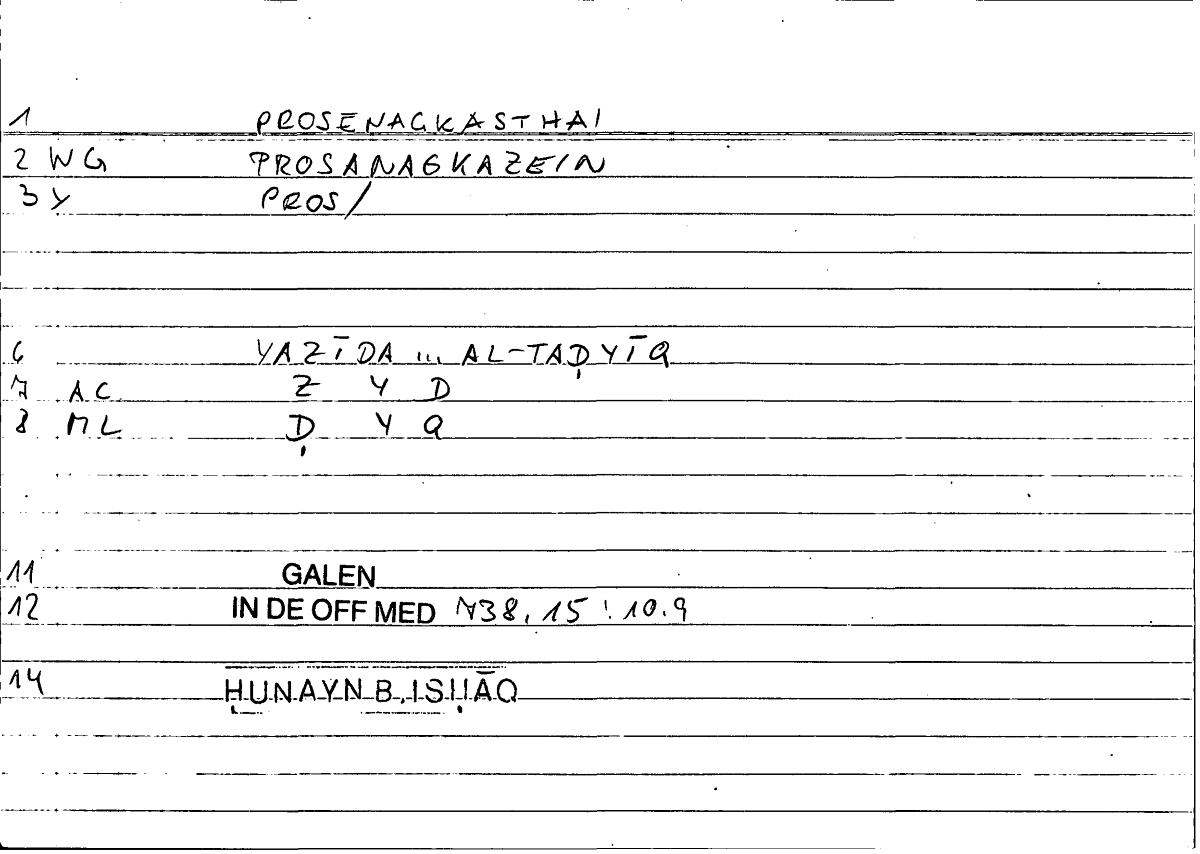 1 PROSENAGKASTHAI
2 WG PROSANAGKAZEIN
3 Y PROS/
6 YAZĪDA ... AL-TAḌYĪQ
7 AC Z Y D
8 ML Ḍ Y Q
11 GALEN
12 IN DE OFF MED 738,15 : 10.9
14 ḤUNAYN B. ISḤĀQ